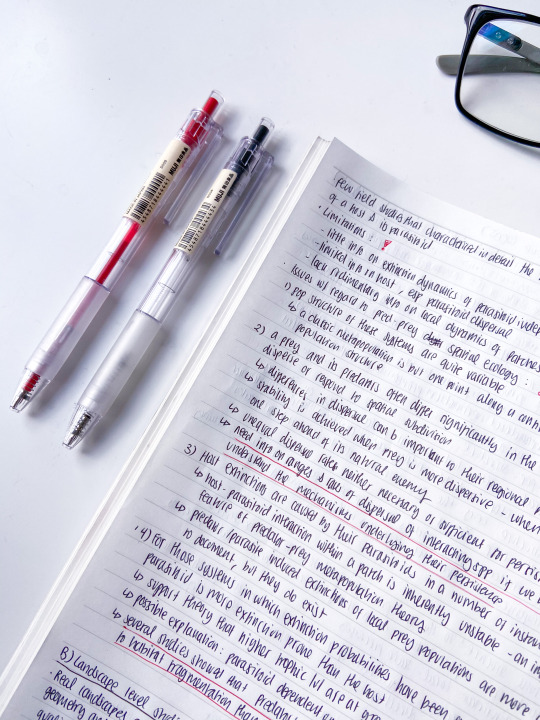 MUJI 無印良品
MUJI 無印良品
few field studies that characterized in detail the
of a host & its parasitoid
· Limitations :
- little info on extinction dynamics of parasitoid indep
- limited info on host, esp parasitoid dispersal
- lack rudimentary info on local dynamics of patches
· Issues w/ regard to pred prey spatial ecology :
1) pop structure of these systems are quite variable
↳ a classic metapopulation is but one point along a contin
population structure
2) a prey and its predators often differ significantly in the
disperse or respond to spatial subdivision
↳ differences in dispersal can b important to their regional p
↳ stability is achieved when prey is more dispersive - when
one step ahead of its natural enemy
↳ unequal dispersal rates neither necessary or sufficient for persis
↳ need info on ranges & rates of dispersal of interacting spp if we
understand the mechanisms underlying their persistence
3) Host extinction are caused by their parasitoids in a number of instan
↳ host parasitoid interaction within a patch is inherently unstable - an im
feature of predator-prey metapopulation theory
↳ predator/parasite induced extinctions of local prey populations are more
to document, but they do exist
· 4) For those systems in which extinction probabilities have been
parasitoid is more extinction prone than the host
↳ support theory that higher trophic lvl are at gr
↳ possible explanation: parasitoid dependent on
↳ several studies showed that predators
to habitat fragmentation than
B) Landscape level studi
· Real landscapes
geometry and